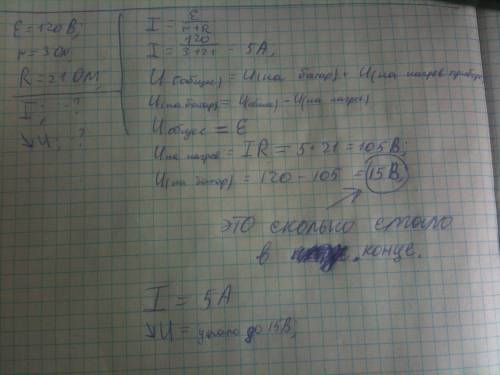 ε=120В;
r=3Ом
R=21Ом
I; ?
↓U; ?
I = ε/r+R
I = 120/3+21 = 5А,
U(общее) = U(на батар) + U(на нагрев прибор
U(на батар) = U(общ) - U(на нагрев)
U общее = ε
U на нагрев = IR = 5*21 = 105В;
U(на батар) = 120 - 105 = 15В,
это сколько стало
в конце.
I = 5А
↓U = упало до 15В;